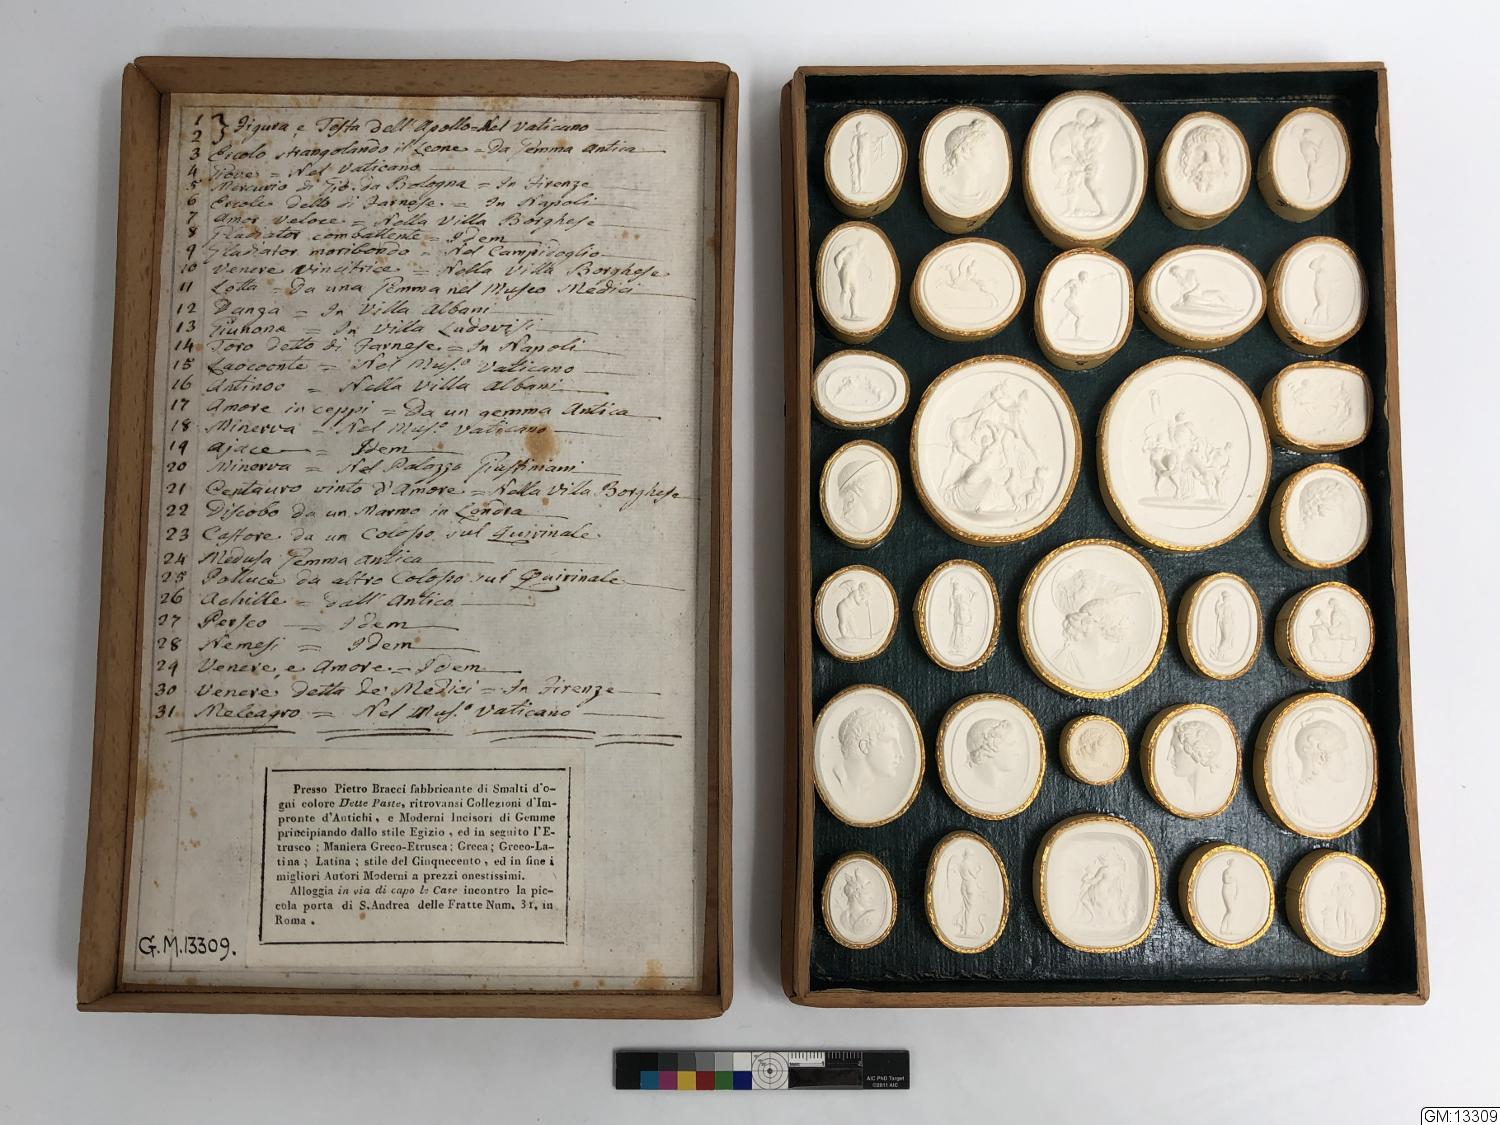 1 } Figura, e Testa dell'Apollo = Nel Vaticano
2
3 Ercole strangolando il Leone = Da Gemma Antica
4 Giove = Nel Vaticano
5 Mercurio di Gio. da Bologna = In Firenze
6 Ercole detto di Farnese = In Napoli
7 Amor veloce = Nella Villa Borghese
8 Gladiator combattente = Idem
9 Gladiator moribondo = Nel Campidoglio
10 Venere vincitrice = Nella Villa Borghese
11 Lotta = Da una Gemma nel Museo Medici
12 Danza = In Villa Albani
13 Giunone = In Villa Ludovisi
14 Toro detto di Farnese = In Napoli
15 Laocoonte = Nel Mus.o Vaticano
16 Antinoo = Nella Villa Albani
17 Amore in ceppi = Da un gemma Antica
18 Minerva = Nel Mus.o Vaticano
19 Ajace = Idem
20 Minerva = Nel Palazzo Giustiniani
21 Centauro vinto d'Amore = Nella Villa Borghese
22 Discobo da un Marmo in Londra
23 Castore da un Colosso sul Quirinale
24 Medusa Gemma antica
25 Polluce da altro Colosso sul Quirinale
26 Achille = dall'Antico
27 Perseo = Idem
28 Nemesi = Idem
29 Venere, e Amore = Idem
30 Venere detta de Medici = In Firenze
31 Meleagro = Nel Mus.o Vaticano
Presso Pietro Bracci fabbricante di Smalti d'o-
gni colore Dette Paste, ritrovansi Collezioni d'Im-
pronte d'Antichi, e Moderni Incisori di Gemme
principiando dallo stile Egizio, ed in seguito l'E-
trusco; Maniera Greco-Etrusca; Greca; Greco-La-
tina; Latina; stile del Cinquecento, ed in fine i
migliori Autori Moderni a prezzi onestissimi.
Alloggia in via di capo le Case incontro la pic-
cola porta di S. Andrea delle Fratte Num. 31. in
Roma.
G.M.13309.
AIC PhD Target
©2011 AIC
GM:13309